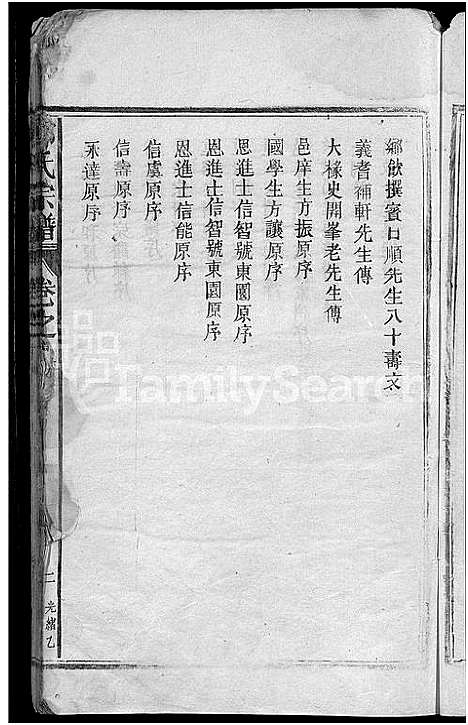 鄉飲撰賓口順先生八十壽文
義耆補軒先生傳
大椽史開峯老先生傳
邑庠生方振原序
國學生方讓原序
恩進士信智號東園原序
恩進士信智號東園原序
恩進士信能原序
信虞原序
信壽原序
永達原序
氏宗譜
卷之
二
光緒乙
FamilySearch